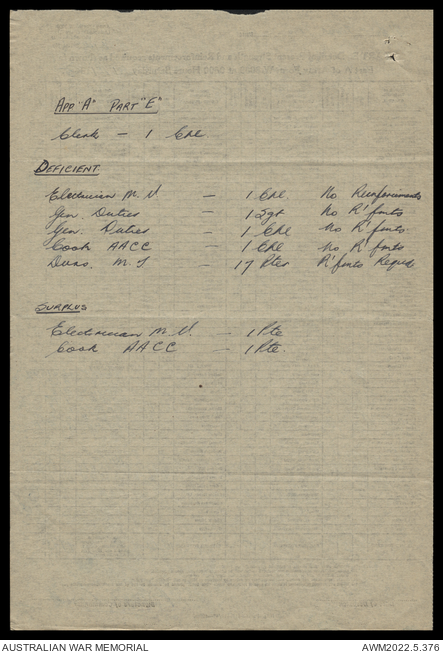 APP "A" PART "E"
Clerk – 1 Cpl
DEFICIENT
Electrician M.V. – 1 Cpl No Reinforcements
Gen. Duties – 1 Sgt No R'fnts
Gen. Duties – 1 Cpl No R'fnts.
Cook AACC – 1 Cpl No R'fnts
Dvrs. M.T – 17 Ptes R'fnts Reqd
SURPLUS
Electrician M.V. – 1 Pte
Cook AACC – 1 Pte.
AUSTRALIAN WAR MEMORIAL AWM2022.5.376